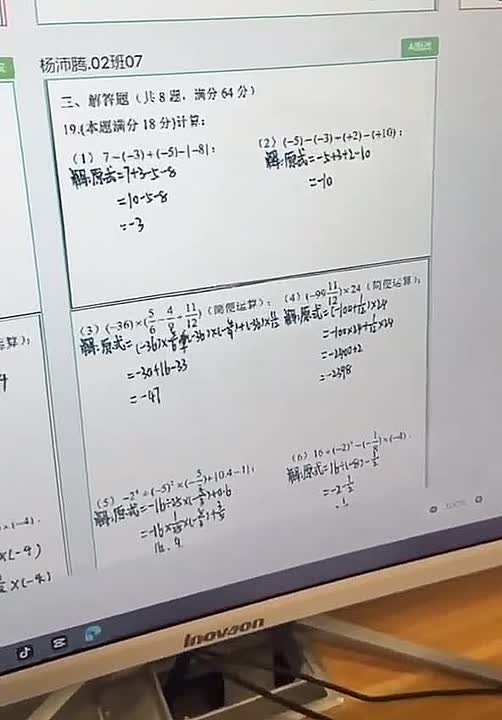 杨沛腾.02班07
三、解答题（共8题，满分64分）
19.(本题满分18分)计算：
（1）7-(-3)+(-5)-|-8|；
解:原式=7+3-5-8
=10-5-8
=-3
（2）(-5)-(-3)-(+2)-(+10)；
解:原式=-5+3+2-10
=-10
（3）(-36)×(5/6-4/9+11/12)（简便运算）；
解:原式=
=-30+16-33
=-47
（4）(-99 11/12)×24（简便运算）；
解:原式=(-100+1/12)×24
=-100×24+1/12×24
=-2400+2
=-2398
（5）
解:原式=-16÷25×
=-16×1/25×
（6）16÷(-2)³-(-1/8)×(-4)．
解:原式=16÷(-8)-1/2
=-2-1/2
算）；
×(-4)．
×(-4)
×(-4)
100%
Inovaon